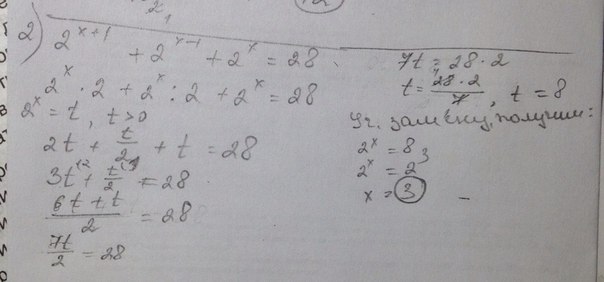 2) 2^{x+1} + 2^{x-1} + 2^x = 28
2^x · 2 + 2^x : 2 + 2^x = 28
2^x = t, t>0
2t + t/2 + t = 28
3t + t/2 = 28
(6t + t)/2 = 28
7t/2 = 28
7t = 28 · 2
t = (28 · 2)/7, t = 8
замену, получим:
2^x = 8
2^x = 2^3
x = 3